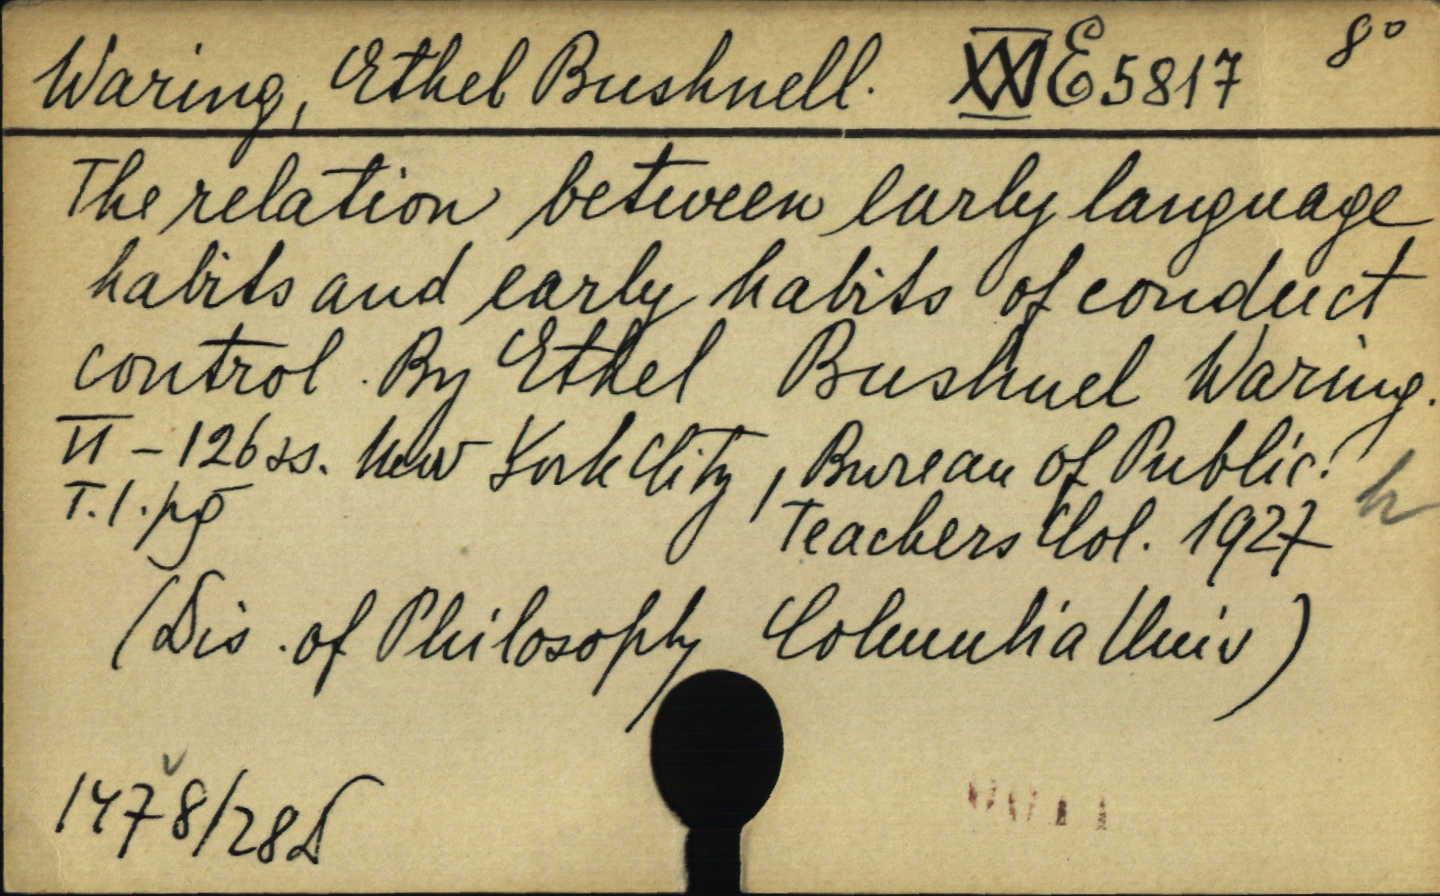 Waring, Ethel Bushnell. XXE5817 8°
The relation between early language
habits and early habits of conduct
control. By Ethel Bushnel Waring.
VI - 126 ss. New York City, Bureau of Public.
T. 1. pg Teachers Col. 1927
(Dis. of Philosophy Columbia Univ)
1478/28D